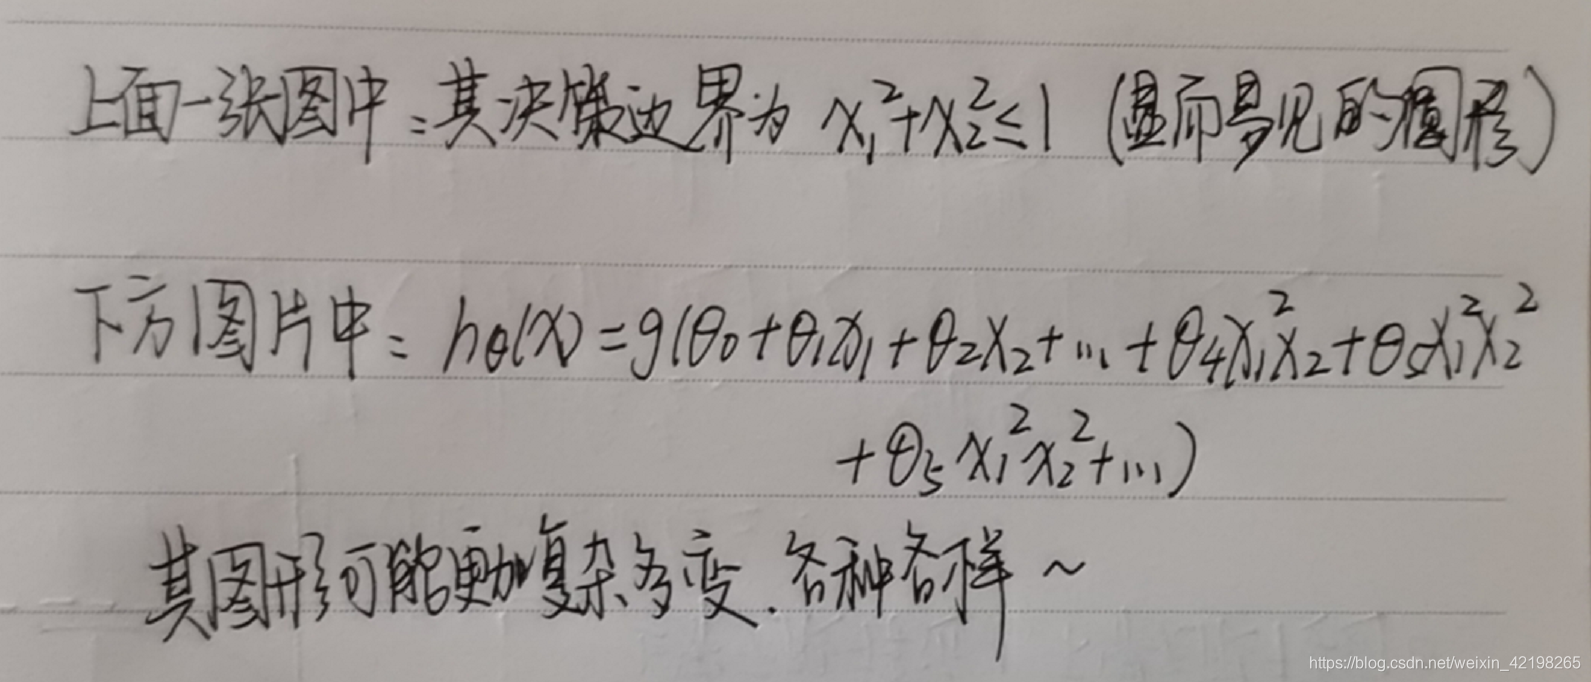 上面一张图中:其决策边界为 x₁²+x₂²≤1 (显而易见的圆形)
下方图片中: hθ(x)=g(θ₀+θ₁x₁+θ₂x₂+...+θ₄x₁²x₂+θ₅x₁²x₂²
+θ₅x₁²x₂²+...)
其图形可能更加复杂多变.各种各样~
https://blog.csdn.net/weixin_42198265